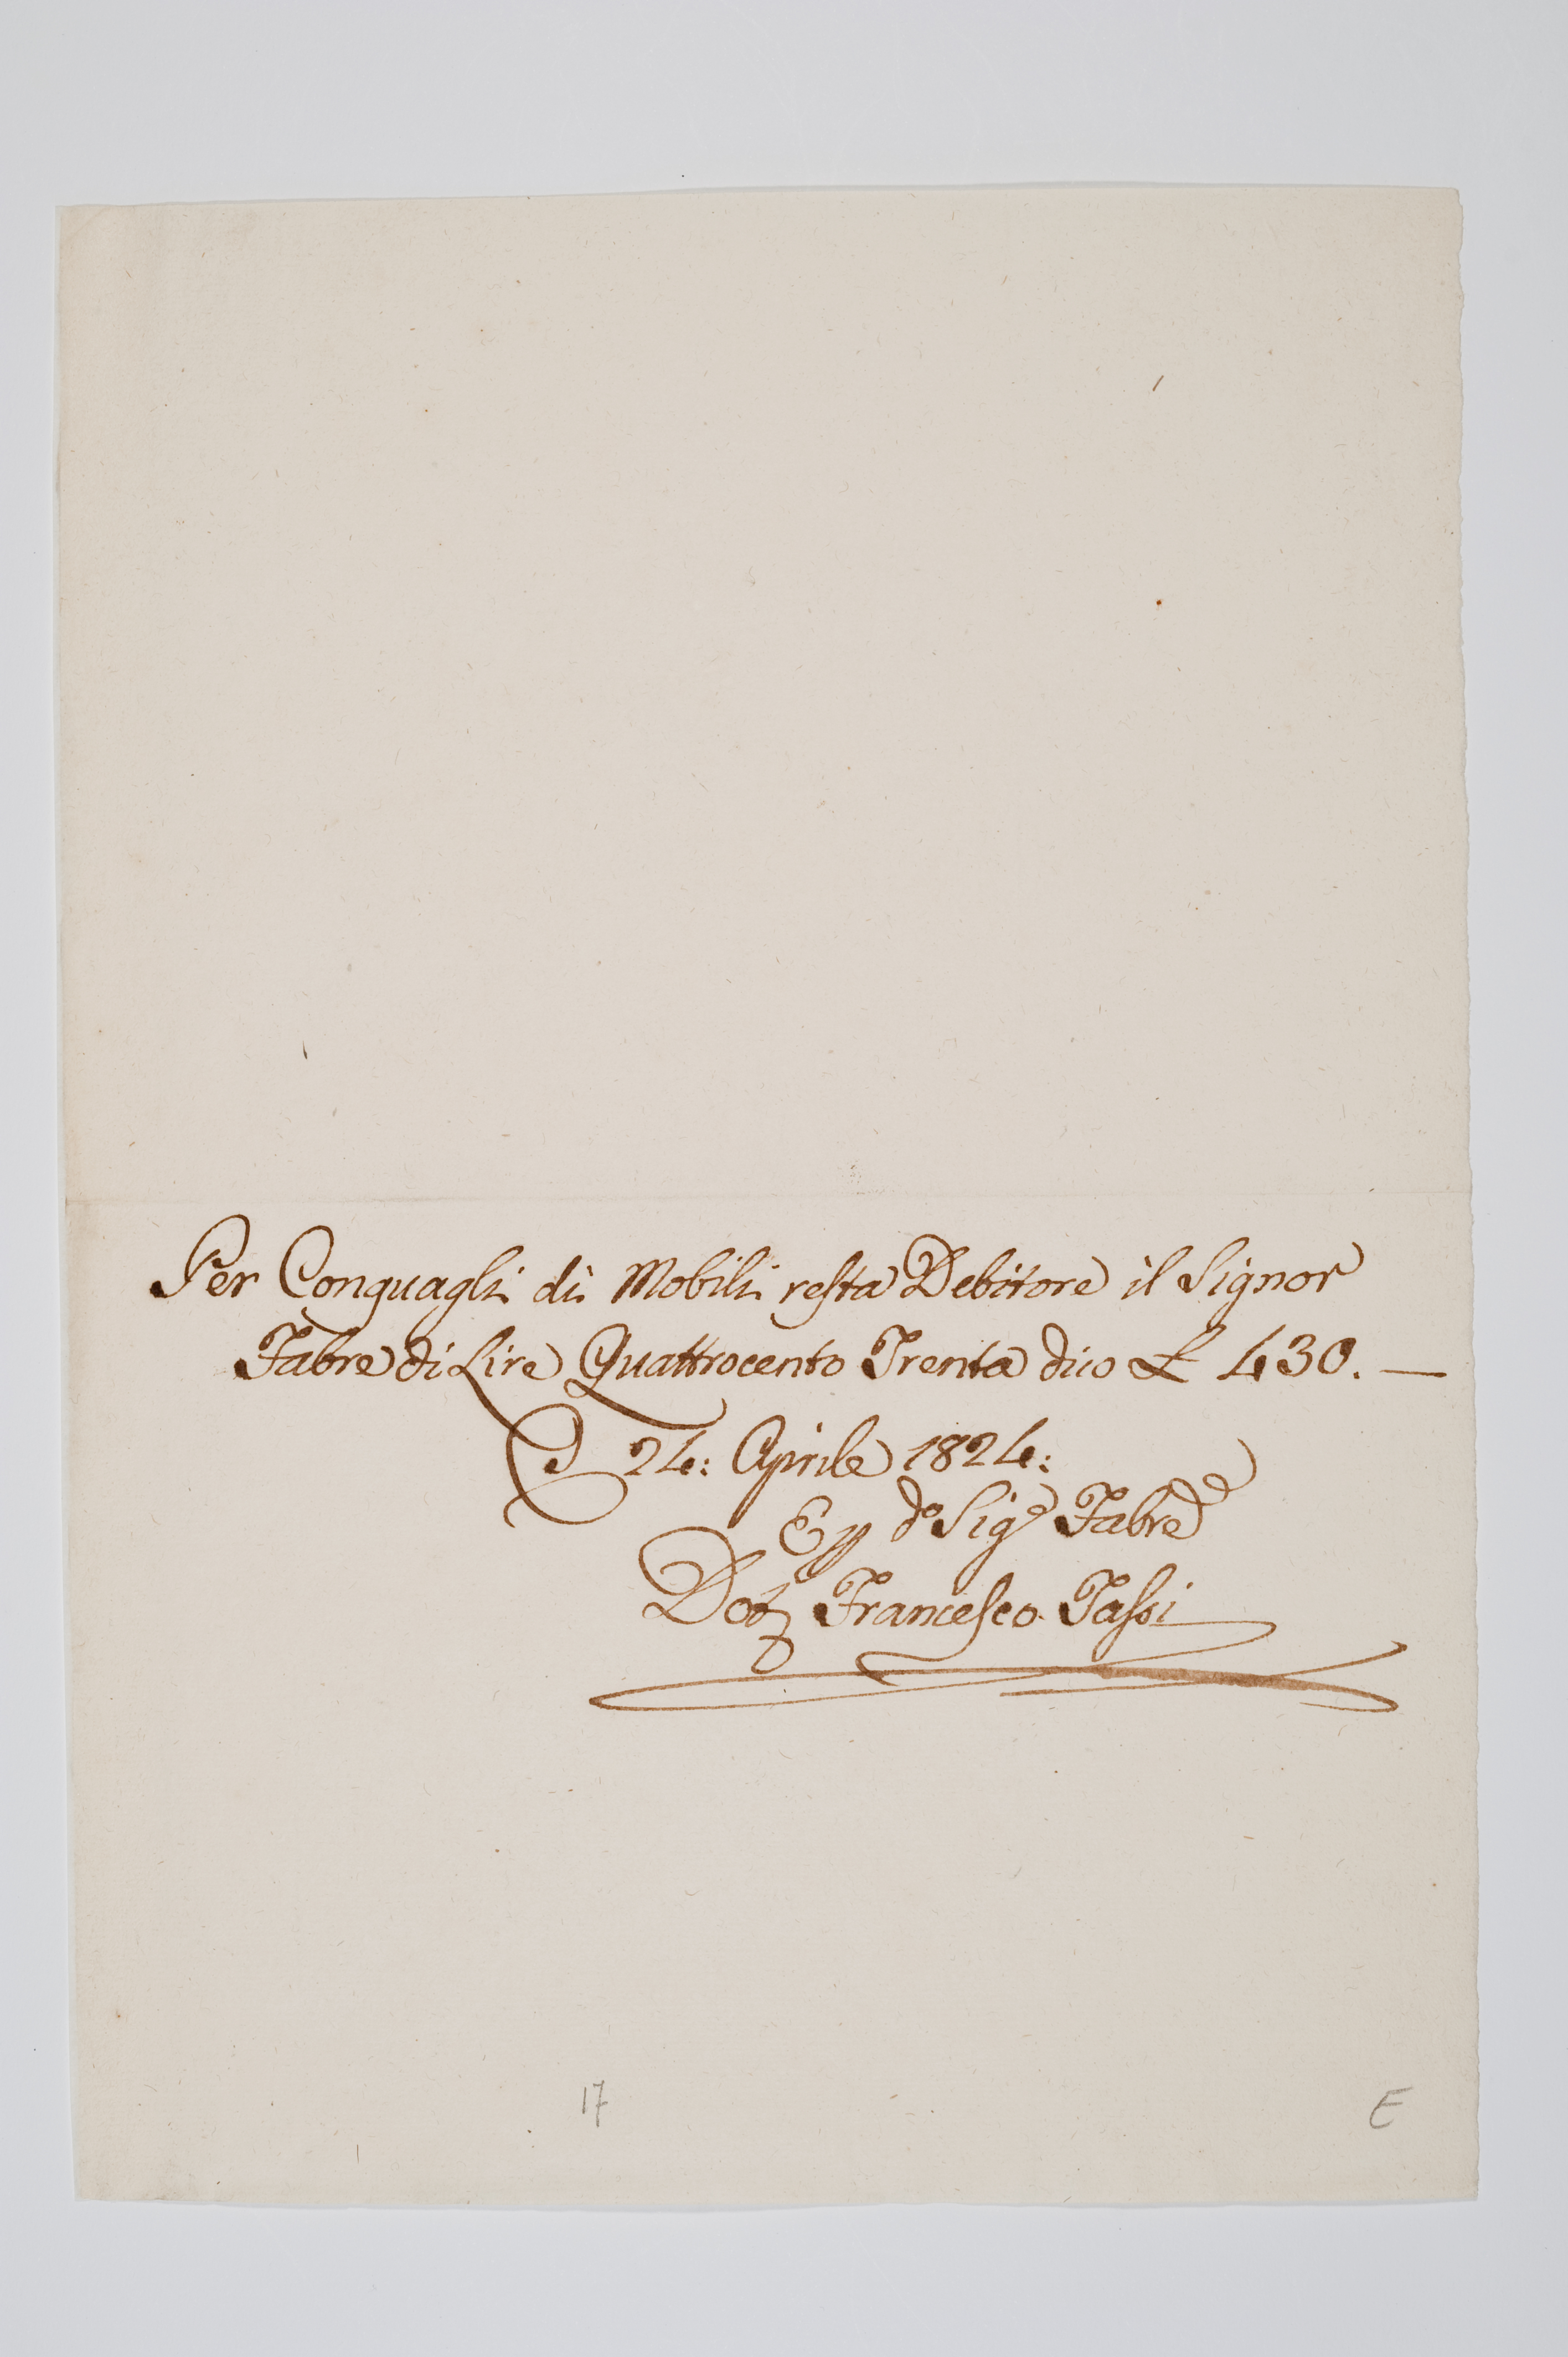 Per Conguagli di Mobili resta Debitore il Signor
Fabre di Lire Quattrocento Trenta dico £ 430. —
24: Aprile 1824:
do Sigr Fabre
Dotr Francesco Tassi
17
E